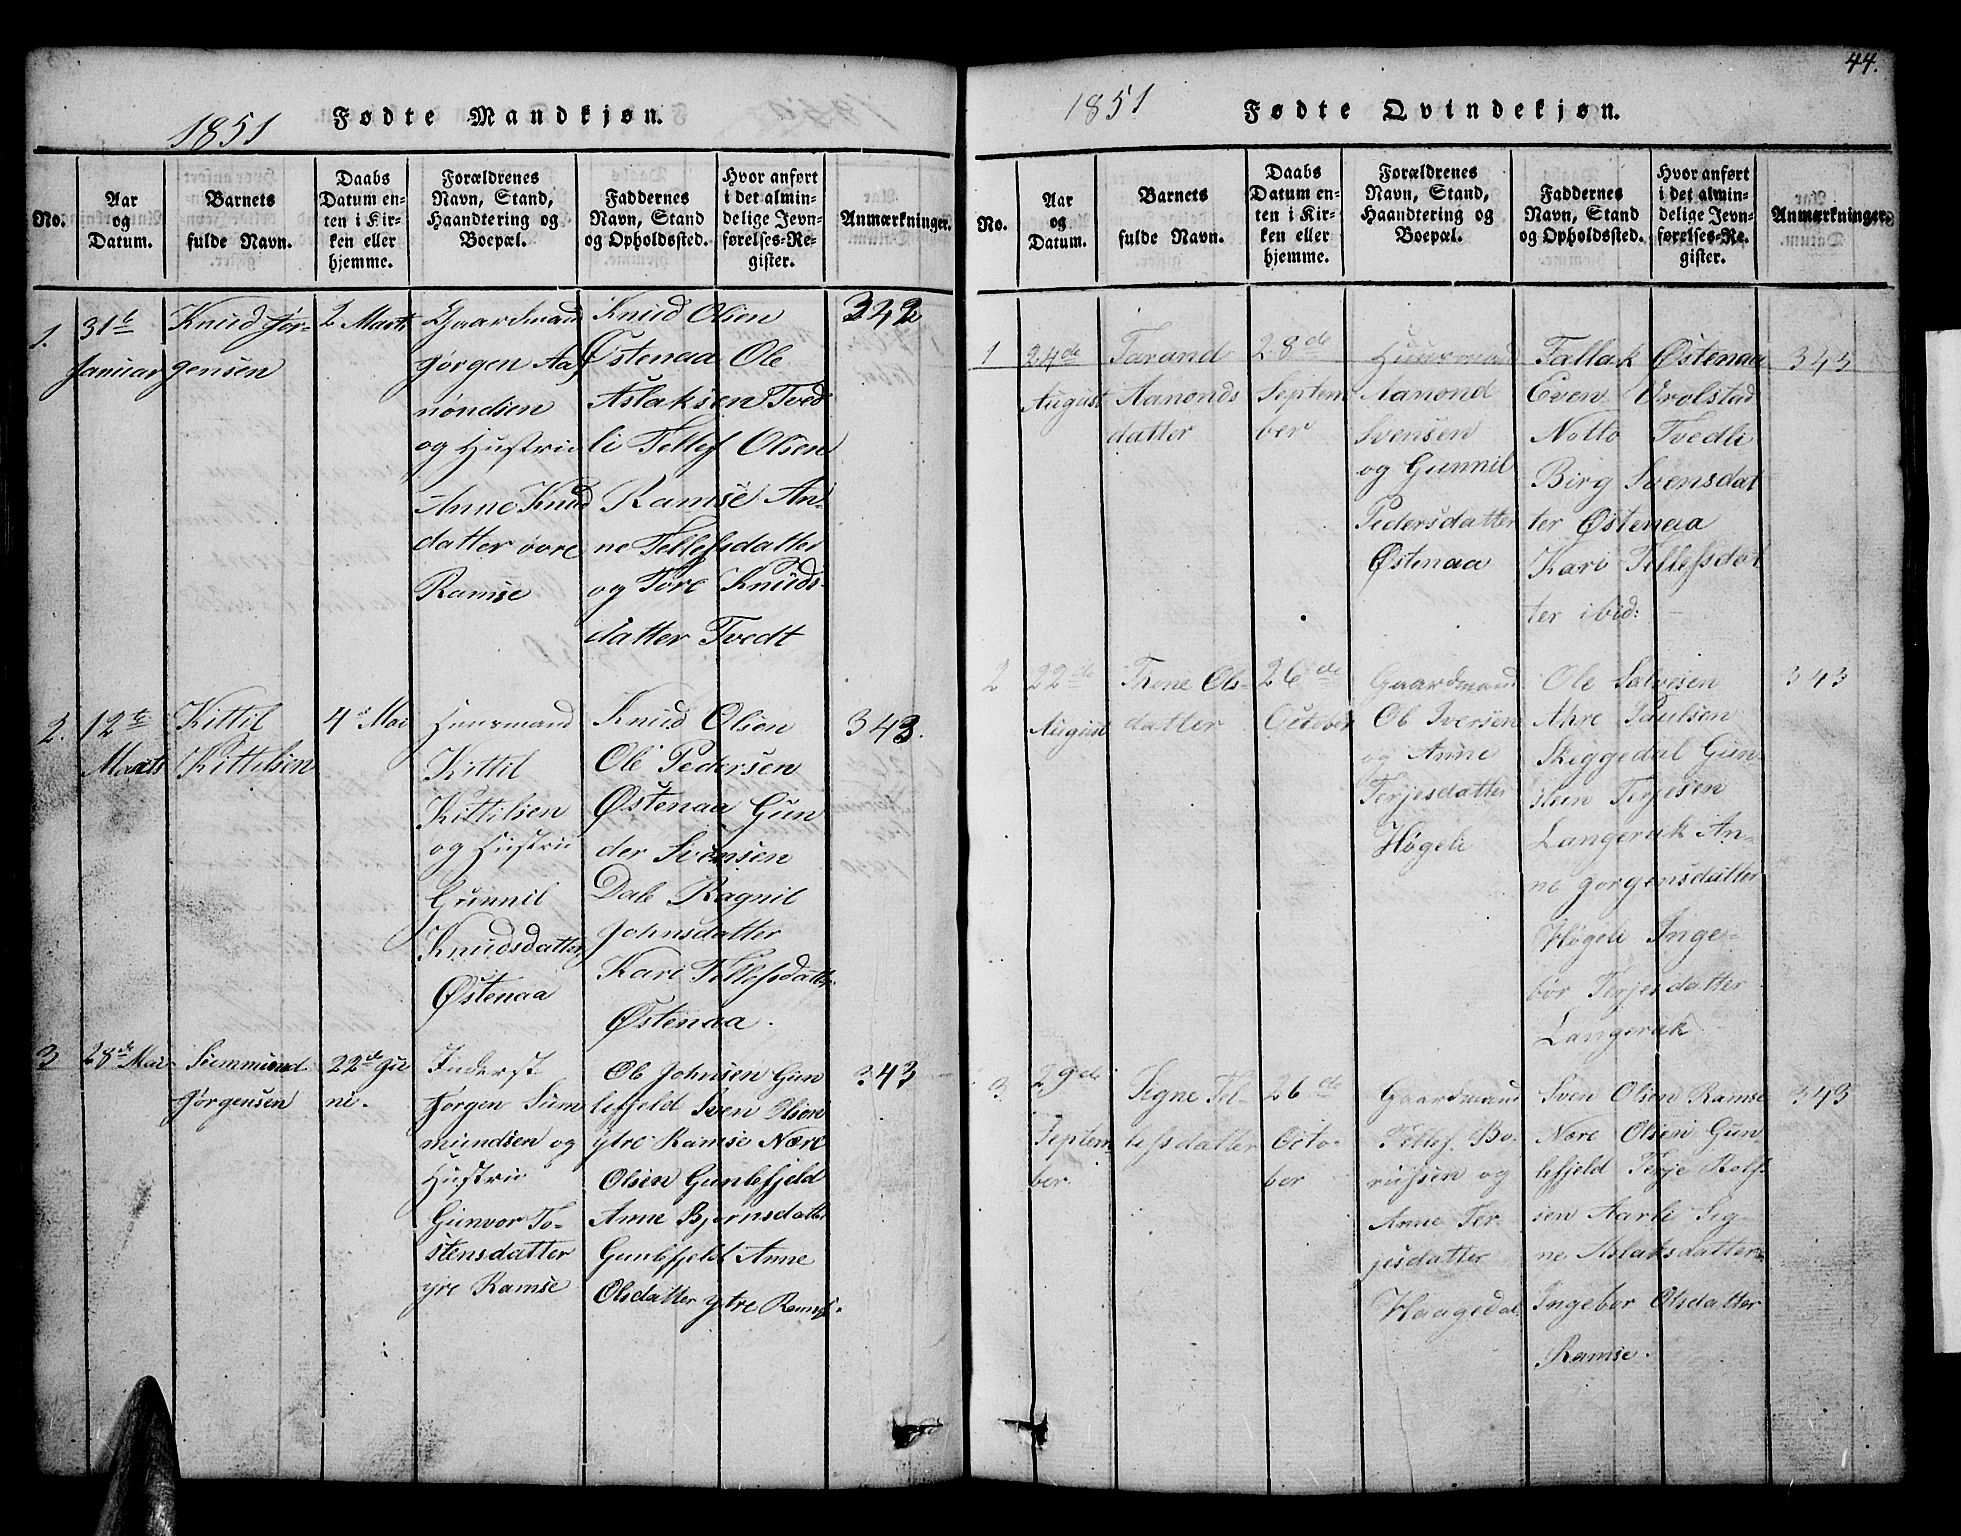 1851 Fødte Mandkjøn.
No.
Aar
og
Datum.
Barnets
fulde Navn.
Daabs
Datum en-
ten i Kir-
ken eller
hjemme.
Forældrenes
Navn, Stand,
Haandtering og
Boepæl.
Faddernes
Navn, Stand
og Opholdssted.
Hvor anført
i det almin-
delige Jevn-
førelses-Re-
gister.
Anmærkninger.
1.
31te
Januar
Knud Jør-
gensen
2 Marts
Gaardmand
Jørgen Aa-
nøndsen
og Hustrue
Anne Knud
datter øvre
Ramse
Knud Olsen
Østenaa Ole
Aslaksen Tved
li Tellef Olsen
Ramse An-
ne Tellefsdatter
og Tore Knuds-
datter Tvedt
342
2.
12te
Marts
Kittil
Kittilsen
4de Mai
Huusmand
Kittil
Kittilsen
og Hustrue
Gunnil
Knudsdatter
Østenaa
Knud Olsen
Ole Pedersen
Østenaa Gun
der Svensen
Dale Ragnil
Johnsdatter
Kari Tellefsdatter
Østenaa.
343.
3
28de Mai
Summund
Jørgensen
22de Ju
ni.
Inderst
Jørgen Sum
mundsen og
Hustrue
Gunvor To-
stensdatter
ytre Ramse
Ole Johnsen Gun
lefjeld Sven Olsen
ytre Ramse Nære
Olsen Gunlefjeld
Anne Bjørnsdatter
Gunlefjeld Anne
Olsdatter ytre Ramse.
343
44.
1851 Fødte Qvindekjøn.
No.
Aar
og
Datum.
Barnets
fulde Navn.
Daabs
Datum en-
ten i Kir-
ken eller
hjemme.
Forældrenes
Navn, Stand,
Haandtering og
Boepæl.
Faddernes
Navn, Stand
og Opholdssted.
Hvor anført
i det almin-
delige Jevn-
førelses-Re-
gister.
Anmærkninger.
1
24de
August
Tarand
Aanonds
datter
28de
Septem
ber
Huusmand
Aanond
Svensen
og Gunnil
Pedersdatter
Østenaa
Tallak Østenaa
Even Urolstad
Notto Tvedli
Birg Svensdat
ter Østenaa
Kari Tellefsdat
ter ibid:
343
2
22de
August
Thone Ols-
datter
26de
October
Gaardmand
Ole Iversen
og Anne
Terjesdatter
Høgeli
Ole Salvesen
Ahre Paulsen
Skeggedal Gun-
stein Terjesen
Langerak An-
ne Jørgensdatter
Høgeli Inge-
bor Terjesdatter
Langerak
343
3.
29de
Septem
ber.
Segne Tel-
lefsdatter
26de
Octo-
ber
Gaardmand
Tellef Bo-
rufsen og
Anne Ter
jesdatter
Haagedal
Sven Olsen Ramse
Nære Olsen Gun
lefjeld Terje Rolf-
sen Aarli Sig-
ne Aslaksdatter
Ingebor Olsdatter
Ramse.
343